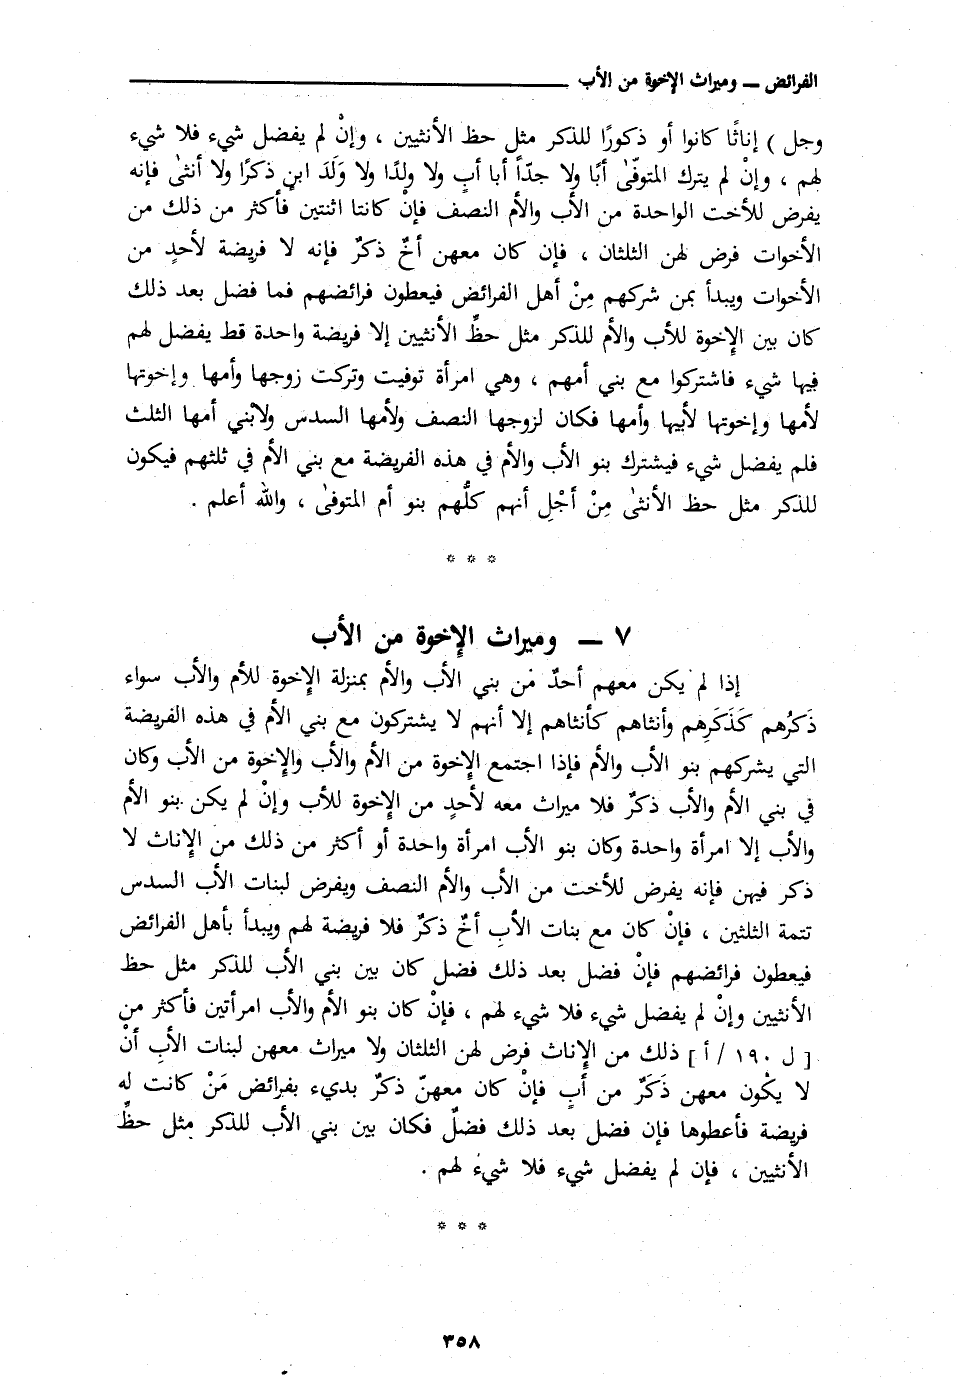 الفرائض ــ وميراث الإخوة من الأب
وجل ) إناثًا كانوا أو ذكورًا للذكر مثل حظ الأنثيين ، وإنْ لم يفضل شيء فلا شيء
لهم ، وإنْ لم يترك المتوفّىٰ أبًا ولا جدّاً أبا أبٍ ولا ولدًا ولا وَلَدَ ابنٍ ذكرًا ولا أنثىٰ فإنه
يفرض للأخت الواحدة من الأب والأم النصف فإنْ كانتا اثنتين فأكثر من ذلك من
الأخوات فرض لهن الثلثان ، فإن كان معهن أخٌ ذكرٌ فإنه لا فريضة لأحدٍ من
الأخوات ويبدأ بمن شركهم مِنْ أهل الفرائض فيعطون فرائضهم فما فضل بعد ذلك
كان بين الإِخوة للأب والأم للذكر مثل حظِّ الأنثيين إلا فريضة واحدة قط يفضل لهم
فيها شيء فاشتركوا مع بني أمهم ، وهي امرأة توفيت وتركت زوجها وأمها وإخوتها
لأمها وإخوتها لأبيها وأمها فكان لزوجها النصف ولأمها السدس ولابْني أمها الثلث
فلم يفضل شيء فيشترك بنو الأب والأم في هذه الفريضة مع بني الأم في ثلثهم فيكون
للذكر مثل حظ الأنثىٰ مِنْ أجْلِ أنهم كلُّهم بنو أم المتوفىٰ ، والله أعلم .
* * *
٧ ــ وميراث الإِخوة من الأب
إذا لم يكن معهم أحدٌ من بني الأب والأم بمنزلة الإِخوة للأم والأب سواء
ذَكرُهم كَذَكَرِهم وأنثاهم كأنثاهم إلا أنهم لا يشتركون مع بني الأم في هذه الفريضة
التي يشركهم بنو الأب والأم فإذا اجتمع الإِخوة من الأم والأب والإِخوة من الأب وكان
في بني الأم والأب ذكرٌ فلا ميراث معه لأحدٍ من الإِخوة للأب وإنْ لم يكن بنو الأم
والأب إلا امرأة واحدة وكان بنو الأب امرأة واحدة أو أكثر من ذلك من الإِناث لا
ذكر فيهن فإنه يفرض للأخت من الأب والأم النصف ويفرض لبنات الأب السدس
تتمة الثلثين ، فإنْ كان مع بنات الأبِ أخٌ ذكرٌ فلا فريضة لهم ويبدأ بأهل الفرائض
فيعطون فرائضهم فإنْ فضل بعد ذلك فضل كان بين بني الأب للذكر مثل حظ
الأنثيين وإنْ لم يفضل شيء فلا شيء لهم ، فإنْ كان بنو الأم والأب امرأتين فأكثر من
[ ل ١٩٠ / أ ] ذلك من الإِناث فرض لهن الثلثان ولا ميراث معهن لبنات الأبِ أنْ
لا يكْون معهن ذَكَرٌ من أَبٍ فإنْ كان معهنّ ذكرٌ بديء بفرائض مَنْ كانت له
فريضة فأعطوها فإن فضل بعد ذلك فضلٌ فكان بين بني الأب للذكر مثل حظِّ
الأنثيين ، فإن لم يفضل شيء فلا شيءُ لهم .
* * *
٣٥٨